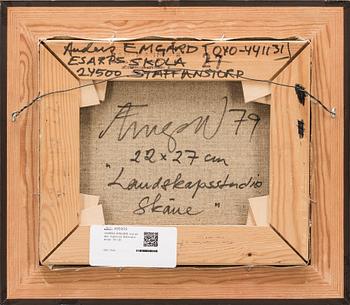 Anders EMGÅRD [040-441131]
ESARPS SKOLA 29
24500 STAFFANSTORP
79
22 x 27 cm
"Landskapsstudio
Skåne"